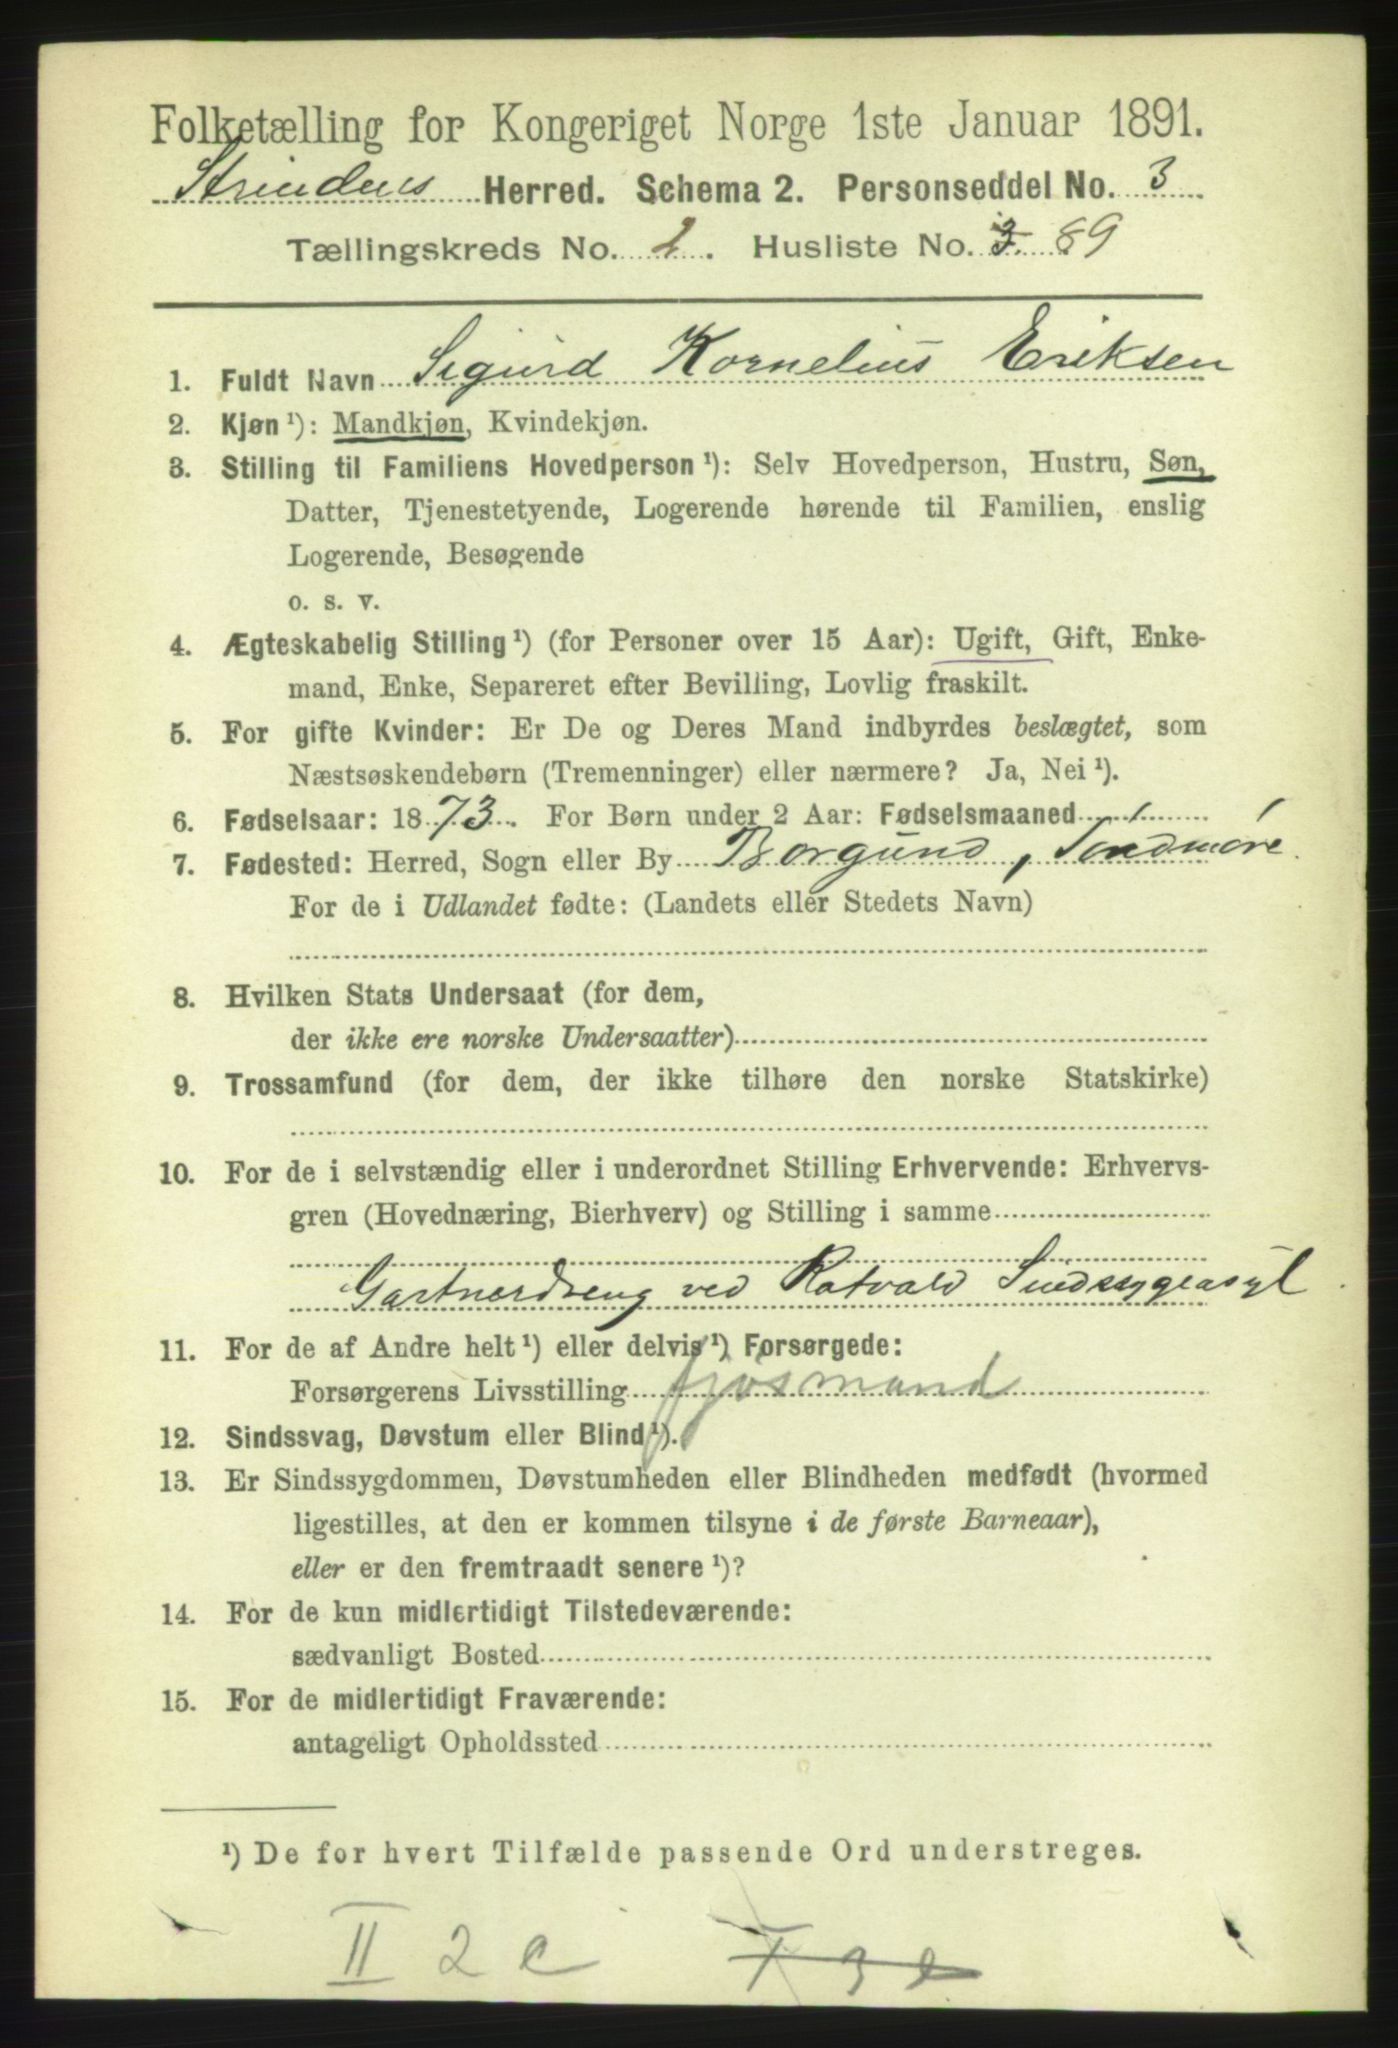 Folketælling for Kongeriget Norge 1ste Januar 1891.
Strindens Herred. Schema 2. Personseddel No. 3
Tællingskreds No. 2. Husliste No. 3. 89
1. Fuldt Navn Sigurd Kornelius Eriksen
2. Kjøn ¹): Mandkjøn, Kvindekjøn.
3. Stilling til Familiens Hovedperson ¹): Selv Hovedperson, Hustru, Søn,
Datter, Tjenestetyende, Logerende hørende til Familien, enslig
Logerende, Besøgende
o. s. v.
4. Ægteskabelig Stilling ¹) (for Personer over 15 Aar): Ugift, Gift, Enke-
mand, Enke, Separeret efter Bevilling, Lovlig fraskilt.
5. For gifte Kvinder: Er De og Deres Mand indbyrdes beslægtet, som
Næstsøskendebørn (Tremenninger) eller nærmere? Ja, Nei ¹).
6. Fødselsaar: 1873. For Børn under 2 Aar: Fødselsmaaned
7. Fødested: Herred, Sogn eller By Borgund, Søndmøre
For de i Udlandet fødte: (Landets eller Stedets Navn)
8. Hvilken Stats Undersaat (for dem,
der ikke ere norske Undersaatter)
9. Trossamfund (for dem, der ikke tilhøre den norske Statskirke)
10. For de i selvstændig eller i underordnet Stilling Erhvervende: Erhvervs-
gren (Hovednæring, Bierhverv) og Stilling i samme
Gartnerdreng ved Rotvold Sindssygeasyl
11. For de af Andre helt ¹) eller delvis ¹) Forsørgede:
Forsørgerens Livsstilling fjøsmand
12. Sindssvag, Døvstum eller Blind ¹).
13. Er Sindssygdommen, Døvstumheden eller Blindheden medfødt (hvormed
ligestilles, at den er kommen tilsyne i de første Barneaar),
eller er den fremtraadt senere ¹)?
14. For de kun midlertidigt Tilstedeværende:
sædvanligt Bosted
15. For de midlertidigt Fraværende:
antageligt Opholdssted
¹) De for hvert Tilfælde passende Ord understreges.
II 2 c